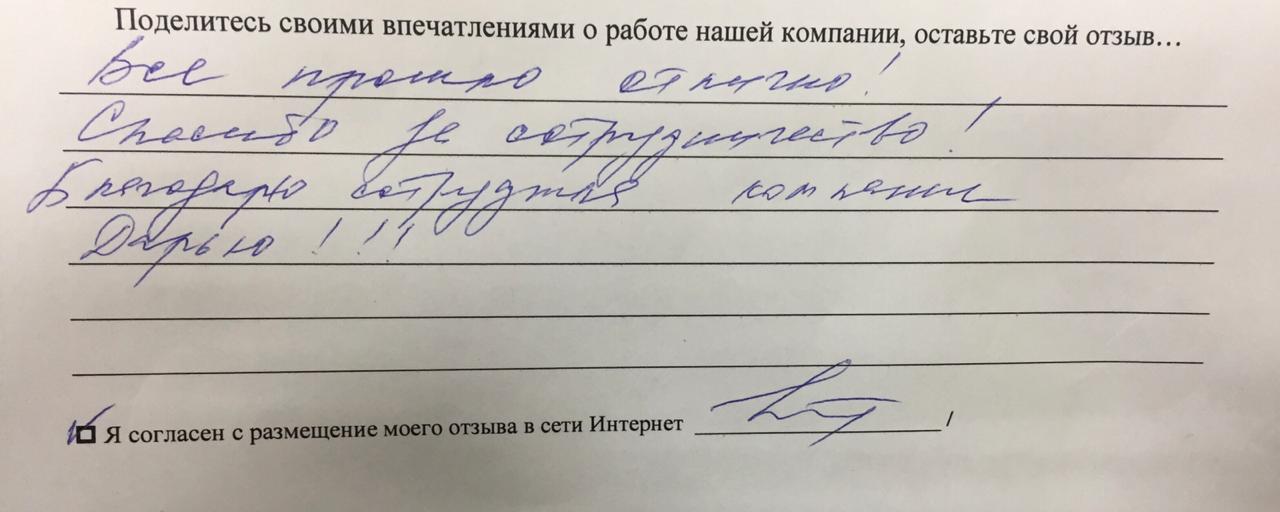 Поделитесь своими впечатлениями о работе нашей компании, оставьте свой отзыв…
Все прошло отлично!
Спасибо за сотрудничество!
Благодарю сотрудника компании
Дарью!!!
Я согласен с размещение моего отзыва в сети Интернет /